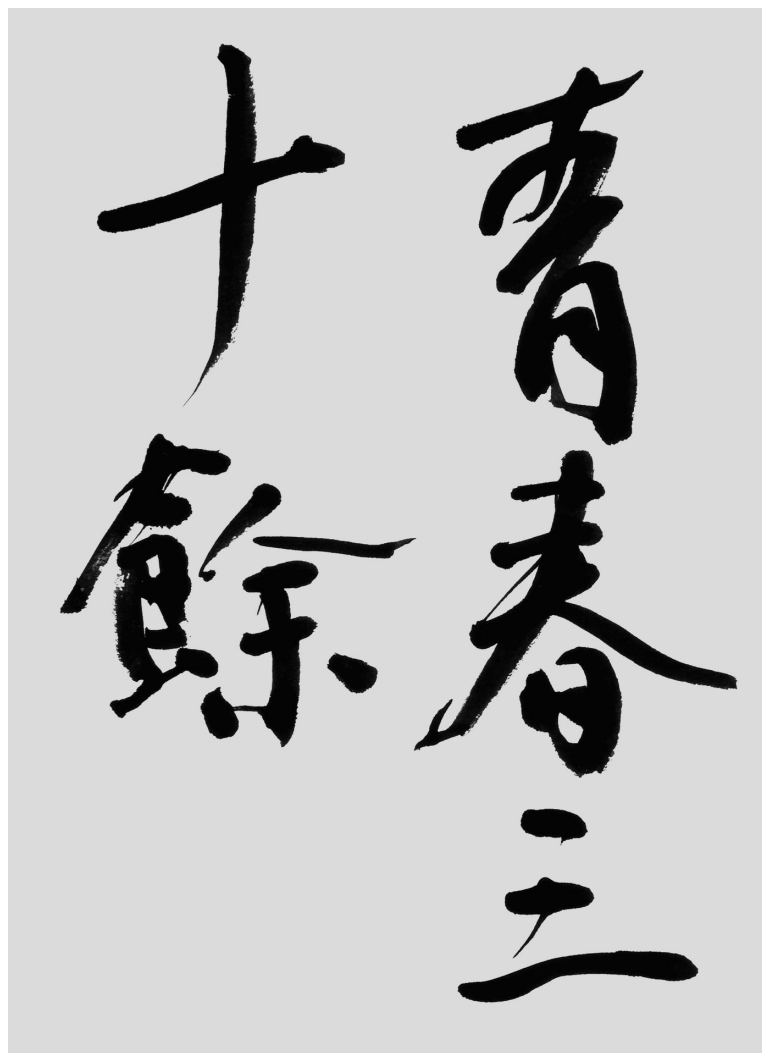 青春三
十餘